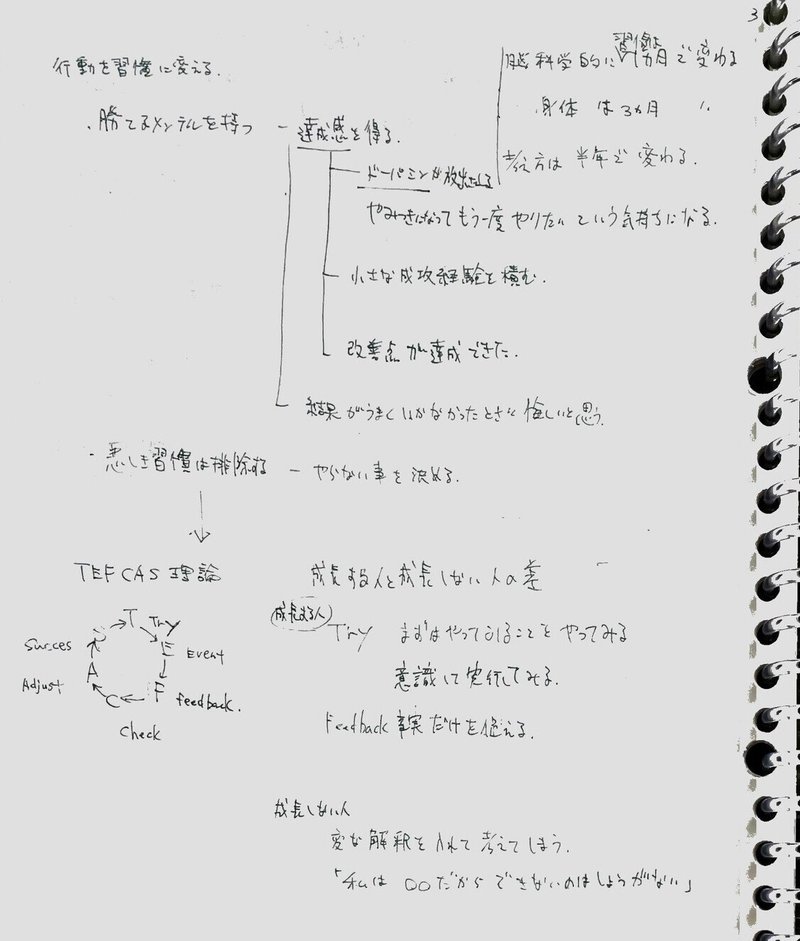 3
行動を習慣に変える.
脳科学的に習慣は1ヵ月で変わる
身体は3ヵ月 〃
考え方は半年で変わる.
・勝てるメンタルを持つ — 達成感を得る.
ドーパミンが放出される
やみつきになってもう一度やりたいという気持ちになる.
小さな成攻経験を積む.
改善点が達成できた.
結果がうまくいかなかったときに悔しいと思う.
・悪しき習慣は排除する — やらない事を決める.
TEFCAS理論
成長する人と成長しない人の差
成長する人
Try まずはやってみることをやってみる
意識して実行してみる.
Feedback 事実だけを伝える.
T Try
E Event
F feedback.
C Check
A Adjust
S Surces
成長しない人
変な解釈を入れて考えてしまう.
「私は○○だからできないのはしょうがない」